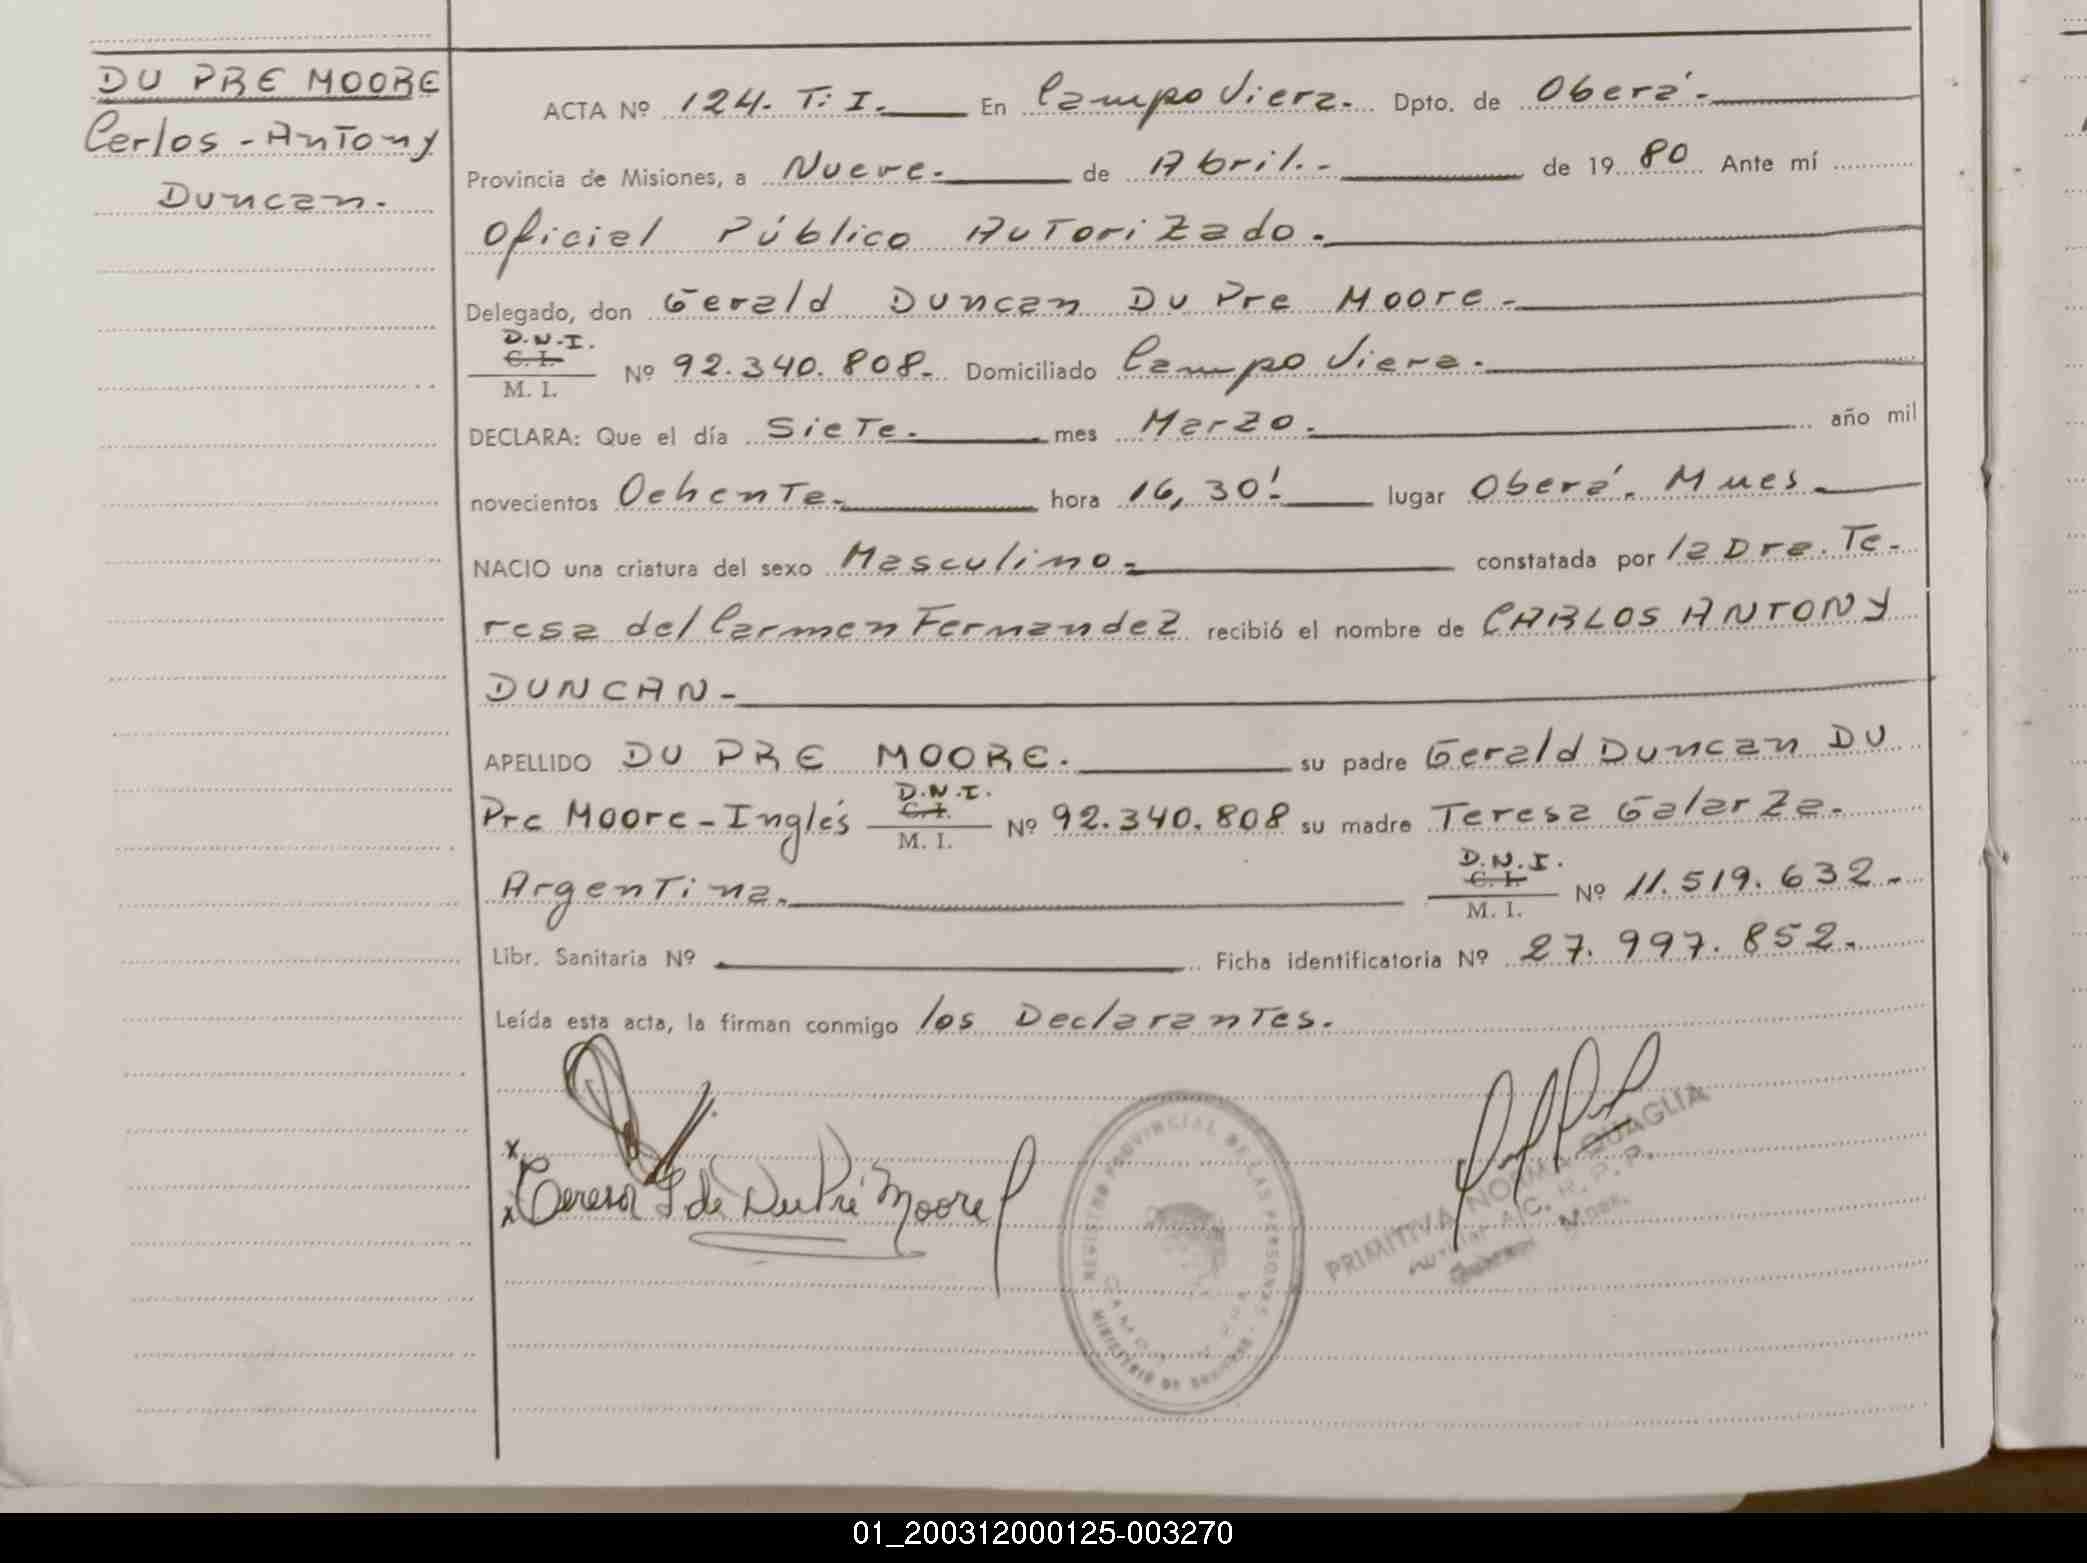 DU PRE MOORE
Cerlos - Antony
Duncan.
ACTA Nº 124. T: I. En Campo Viera. Dpto. de Oberá.
Provincia de Misiones, a Nueve. de Abril. de 1980 Ante mí
Oficial Público Autorizado.
Delegado, don Gerald Duncan Du Pre Moore.
D.N.I.
C. I.
M. I.
Nº 92.340.808. Domiciliado Campo Viera.
DECLARA: Que el día Siete. mes Marzo. año mil
novecientos Ochenta. hora 16,30! lugar Oberá. Mnes.
NACIO una criatura del sexo Masculino. constatada por la Dra. Te-
resa del Carmen Fernandez recibió el nombre de CARLOS ANTONY
DUNCAN.
APELLIDO DU PRE MOORE. su padre Gerald Duncan DU
Pre Moore - Inglés D.N.I. C. I. M. I. Nº 92.340.808 su madre Teresa Galarza.
Argentina. D.N.I. C. I. M. I. Nº 11.519.632.
Libr. Sanitaria Nº Ficha identificatoria Nº 27.997.852.
Leída esta acta, la firman conmigo los Declarantes.
x
x Teresa G de Du Pré Moore
REGISTRO PROVINCIAL DE LAS PERSONAS
MINISTERIO DE GOBIERNO
PRIMITIVA NORMA QUAGLIA
01_200312000125-003270